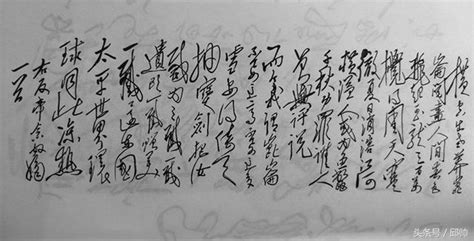 横空出世莽昆
崙阅尽人间春色
飞起玉龙三百万
搅得周天寒
彻夏日消溶江河
横溢人或为鱼鳖
千秋功罪谁人
曾与评说
而今我谓昆崙
不要这高不要这多
雪安得倚天
抽宝剑把汝
裁为三截一截
遗欧一截赠美
一截还东国
太平世界环
球同此凉热
一首
头条号 / 邱帅